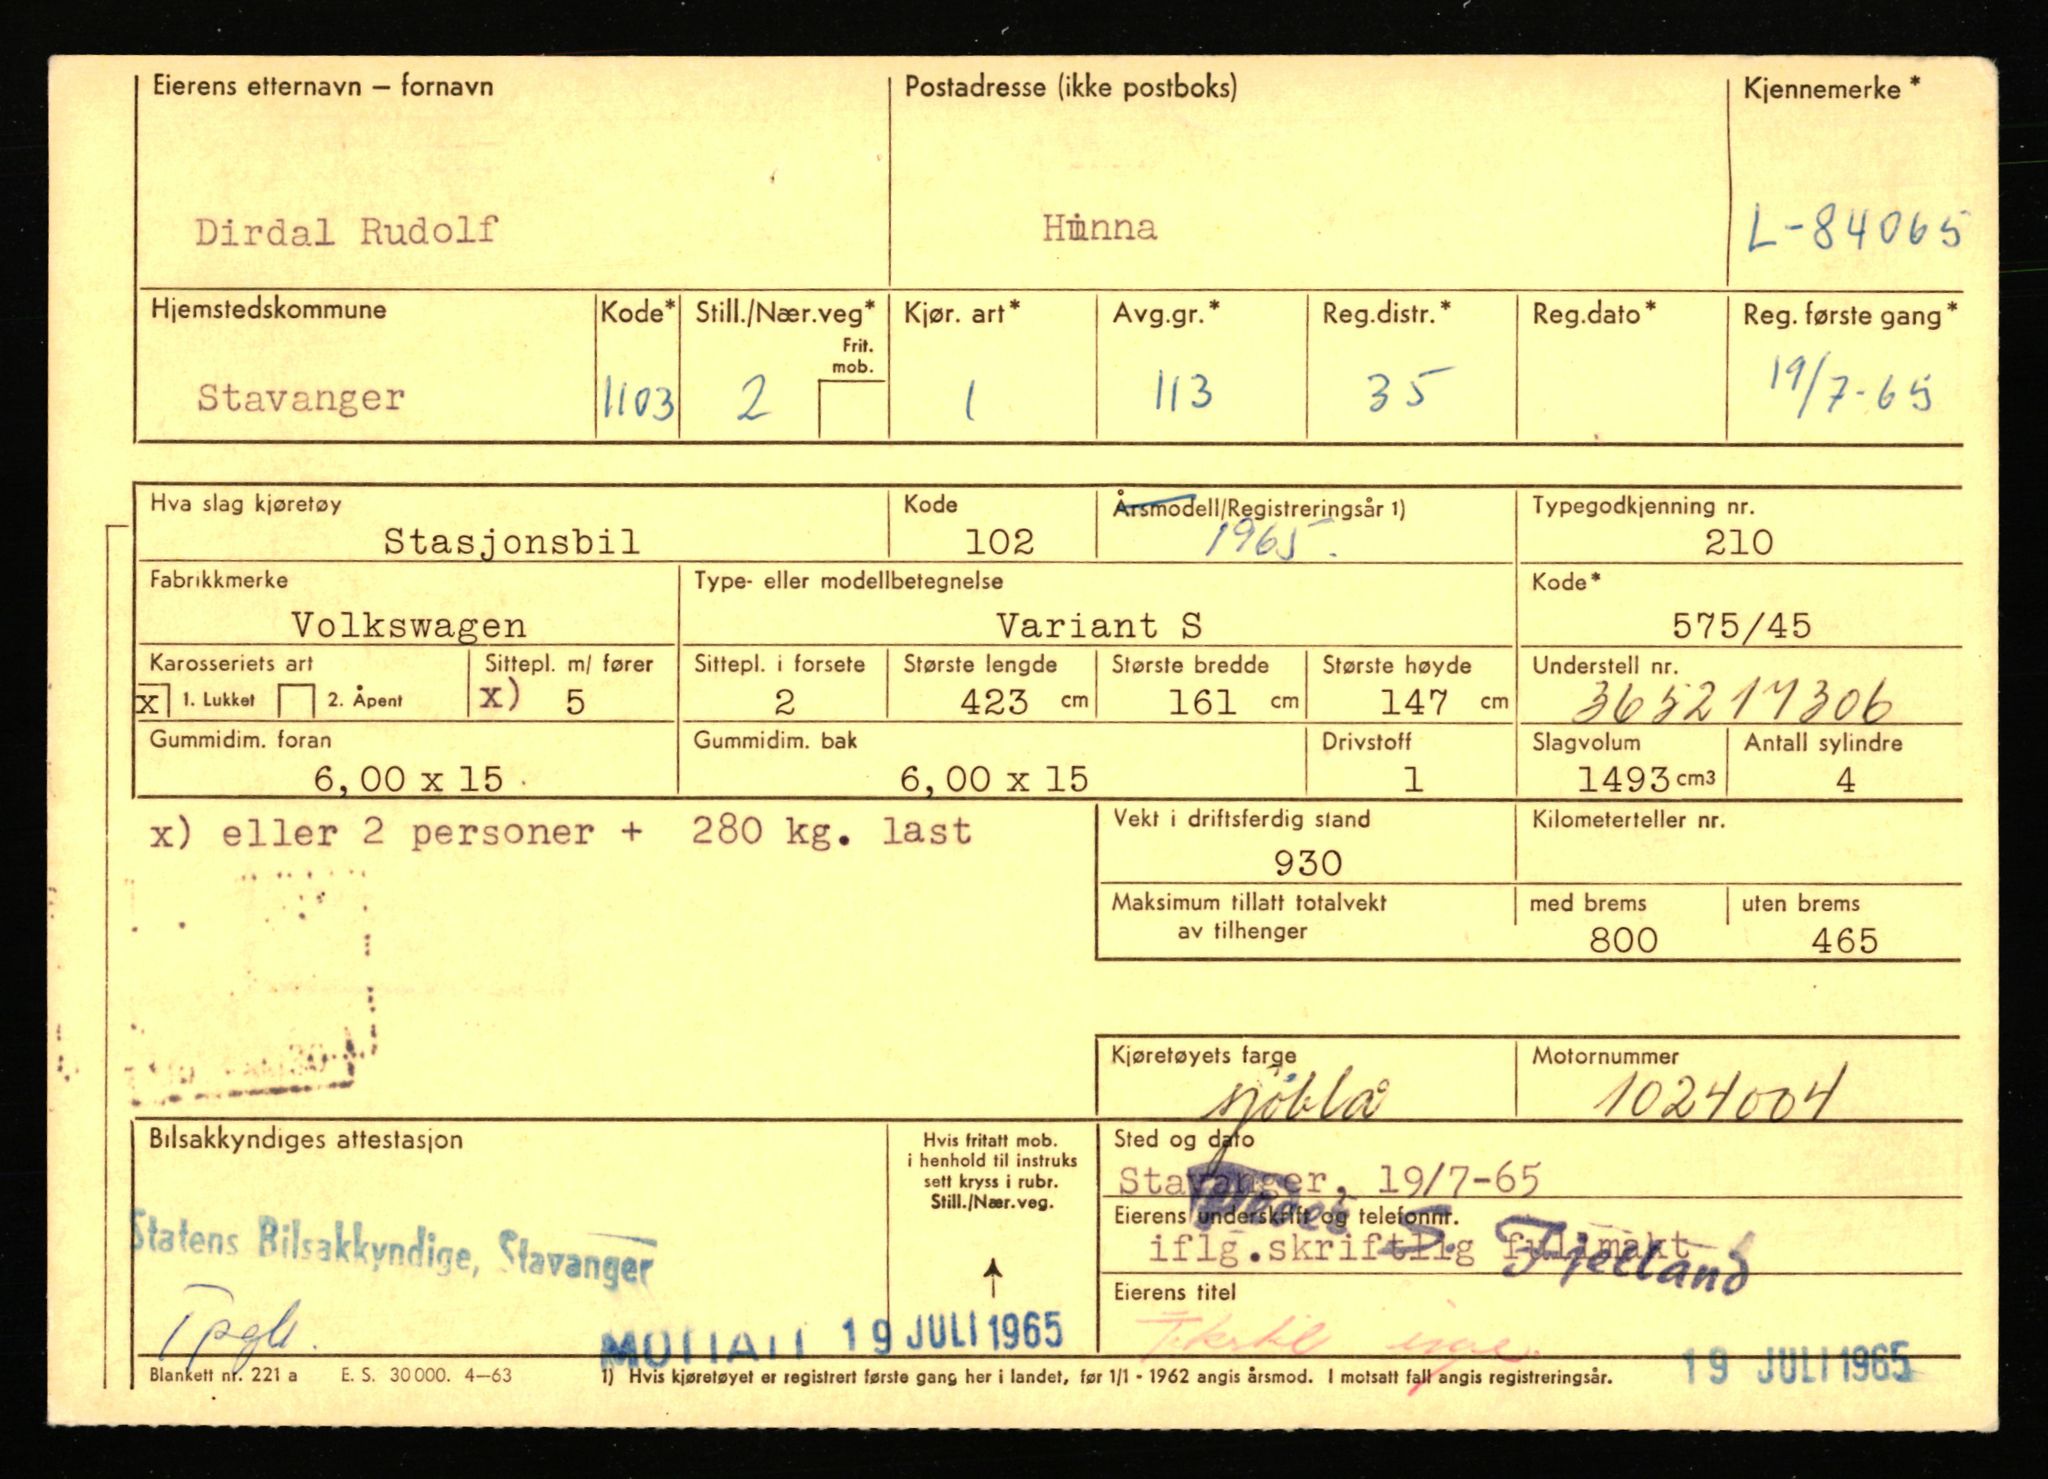 Eierens etternavn – fornavn
Postadresse (ikke postboks)
Kjennemerke *
Dirdal Rudolf
Hinna
L-84065
Hjemstedskommune
Kode*
Still./Nær.veg*
Frit. mob.
Kjør. art*
Avg.gr.*
Reg.distr.*
Reg.dato*
Reg. første gang*
Stavanger
1103
2
1
113
35
19/7-65
Hva slag kjøretøy
Kode
Årsmodell/Registreringsår 1)
Typegodkjenning nr.
Stasjonsbil
102
1965.
210
Fabrikkmerke
Type- eller modellbetegnelse
Kode*
Volkswagen
Variant S
575/45
Karosseriets art
Sittepl. m/ fører
Sittepl. i forsete
Største lengde
Største bredde
Største høyde
Understell nr.
x 1. Lukket
2. Åpent
x) 5
2
423 cm
161 cm
147 cm
365217306
Gummidim. foran
Gummidim. bak
Drivstoff
Slagvolum
Antall sylindre
6,00 x 15
6,00 x 15
1
1493 cm3
4
x) eller 2 personer + 280 kg. last
Vekt i driftsferdig stand
Kilometerteller nr.
930
Maksimum tillatt totalvekt
av tilhenger
med brems
uten brems
800
465
Kjøretøyets farge
Motornummer
sjöblå
1024004
Bilsakkyndiges attestasjon
Hvis fritatt mob.
i henhold til instruks
sett kryss i rubr.
Still./Nær.veg.
Sted og dato
Stavanger, 19/7-65
Eierens underskrift og telefonnr.
iflg.skriftlig fullmakt
S. Fjelland
Statens Bilsakkyndige, Stavanger
Eierens titel
MOTTATT 19 JULI 1965
19 JULI 1965
Blankett nr. 221 a E. S. 30000. 4–63
1) Hvis kjøretøyet er registrert første gang her i landet, før 1/1 - 1962 angis årsmod. I motsatt fall angis registreringsår.